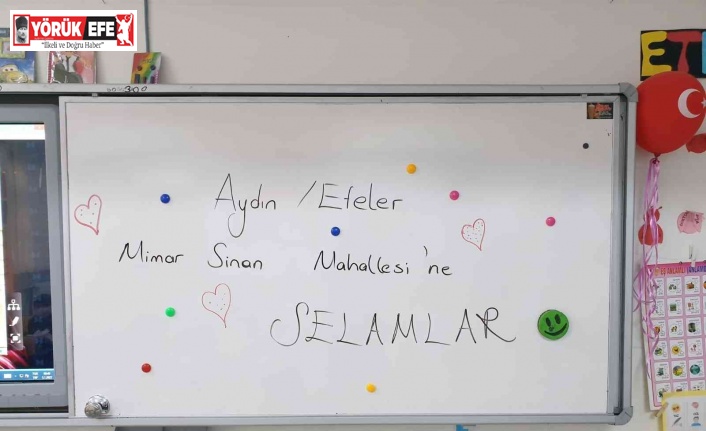 YÖRÜK EFE
"İlkeli ve Doğru Haber"
Aydın / Efeler
Mimar Sinan Mahallesi'ne
SELAMLAR